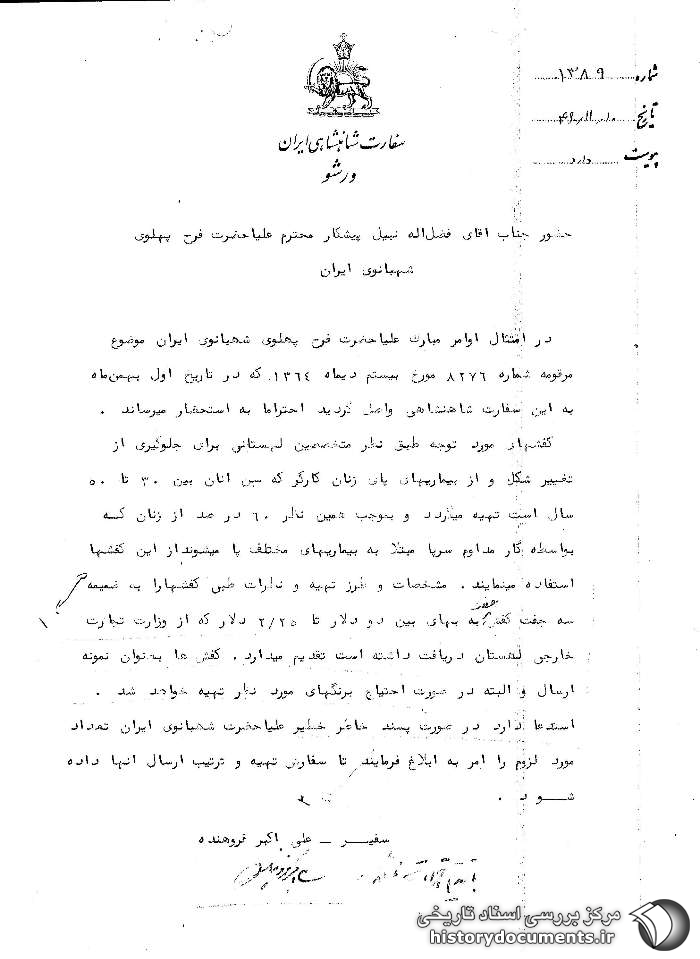 شماره ۱۳۸۹
تاریخ
پیوست دارد
سفارت شاهنشاهی ایران
ورشو
حضور جناب اقای فضل‌اله نبیل پیشکار محترم علیاحضرت فرح پهلوی
شهبانوی ایران
در امتثال اوامر مبارك علیاحضرت فرح پهلوی شهبانوی ایران موضوع
مرقومه شماره ۸۲۷۶ مورخ بیستم دیماه ۱۳۶۴ که در تاریخ اول بهمن‌ماه
به این سفارت شاهنشاهی واصل گردید احتراما به استحضار میرساند .
کفشهای مورد توجه طبق نظر متخصصین لهستانی برای جلوگیری از
تغییر شکل و از بیماریهای پای زنان کارگر که سن انان بین ۳۰ تا ۵۰
سال است تهیه میگردد و بموجب همین نظر ۶۰ در صد از زنان کـه
بواسطه کار مداوم سرپا مبتلا به بیماریهای مختلف پا میشوند از این کفشها
استفاده مینمایند . مشخصات و طرز تهیه و نظرات طبی کفشها را به ضمیمه
سه جفت کفش به بهای بین دو دلار تا ۲/۲۵ دلار که از وزارت تجارت
خارجی لهستان دریافت داشته است تقدیم میدارد . کفش ها بعنوان نمونه
ارسال و البته در صورت احتیاج برنگهای مورد نظر تهیه خواهد شد .
استدعا دارد در صورت پسند خاطر خطیر علیاحضرت شهبانوی ایران تعداد
مورد لزوم را امر به ابلاغ فرمایند تا سفارش تهیه و ترتیب ارسال انها داده
شـود .
سفیـر ـ علی اکبر فروهنده
مرکز بررسی اسناد تاریخی
historydocuments.ir